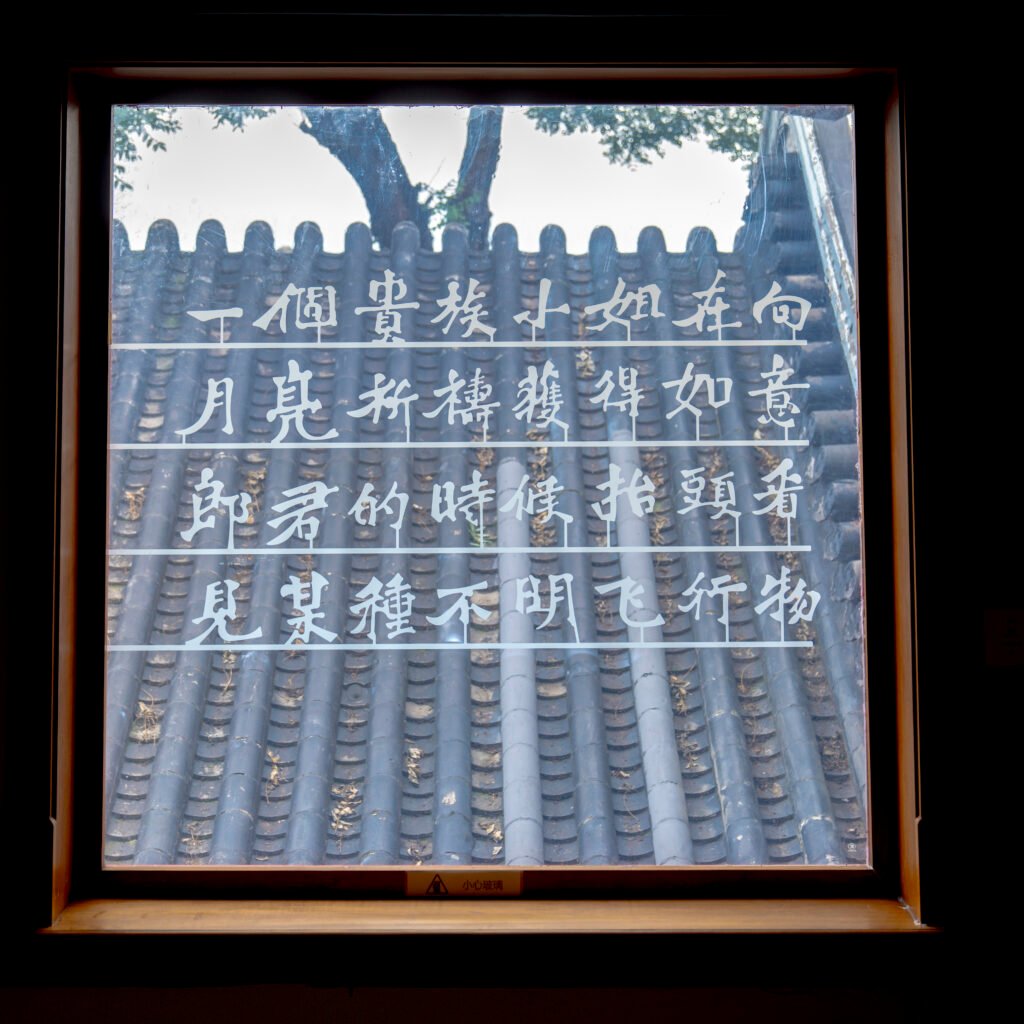 一個貴族小姐在向
月亮祈禱獲得如意
郎君的時候抬頭看
見某種不明飞行物
小心玻璃